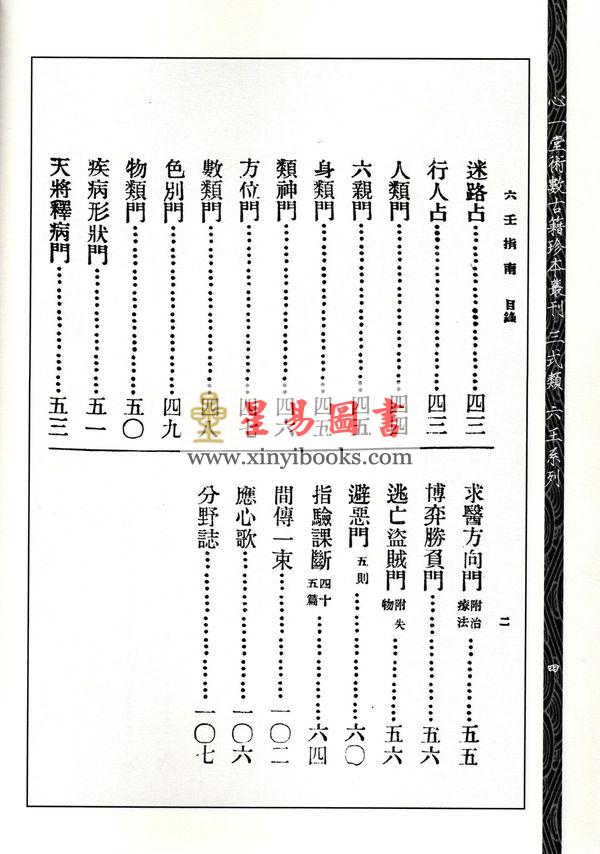 心一堂術數古籍珍本叢刊 三式類 六壬系列
四
六壬指南 目錄
二
迷路占……四三
行人占……四三
人類門……四四
六親門……四五
身類門……四五
類神門……四六
方位門……四七
數類門……四八
色別門……四九
物類門……五〇
疾病形狀門……五一
天將釋病門……五三
求醫方向門 附治療法……五五
博弈勝負門……五六
逃亡盜賊門 附失物……五六
避惡門 五則……六〇
指驗課斷 四十五篇……六四
間傳一束……一〇二
應心歌……一〇六
分野誌……一〇七
星易圖書
www.xinyibooks.com